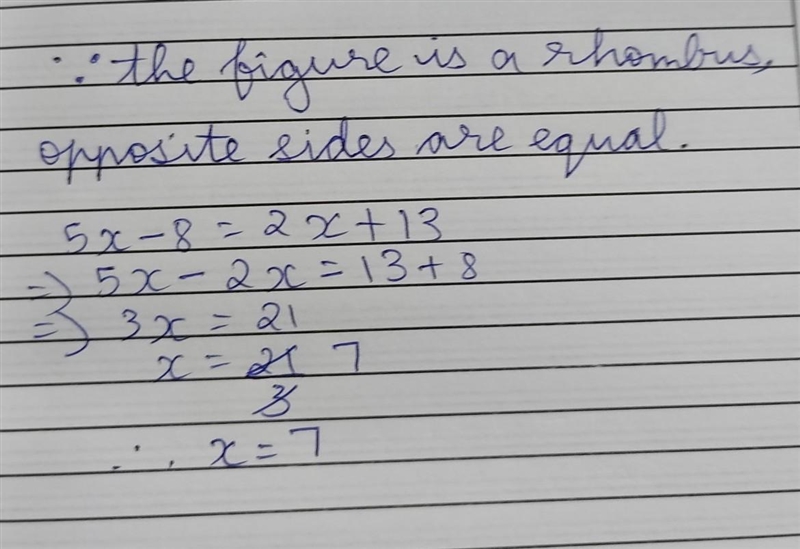 ∵ the figure is a rhombus,
opposite sides are equal.
5x - 8 = 2x + 13
⇒ 5x - 2x = 13 + 8
⇒ 3x = 21
x = 21 7
3
∴ x = 7